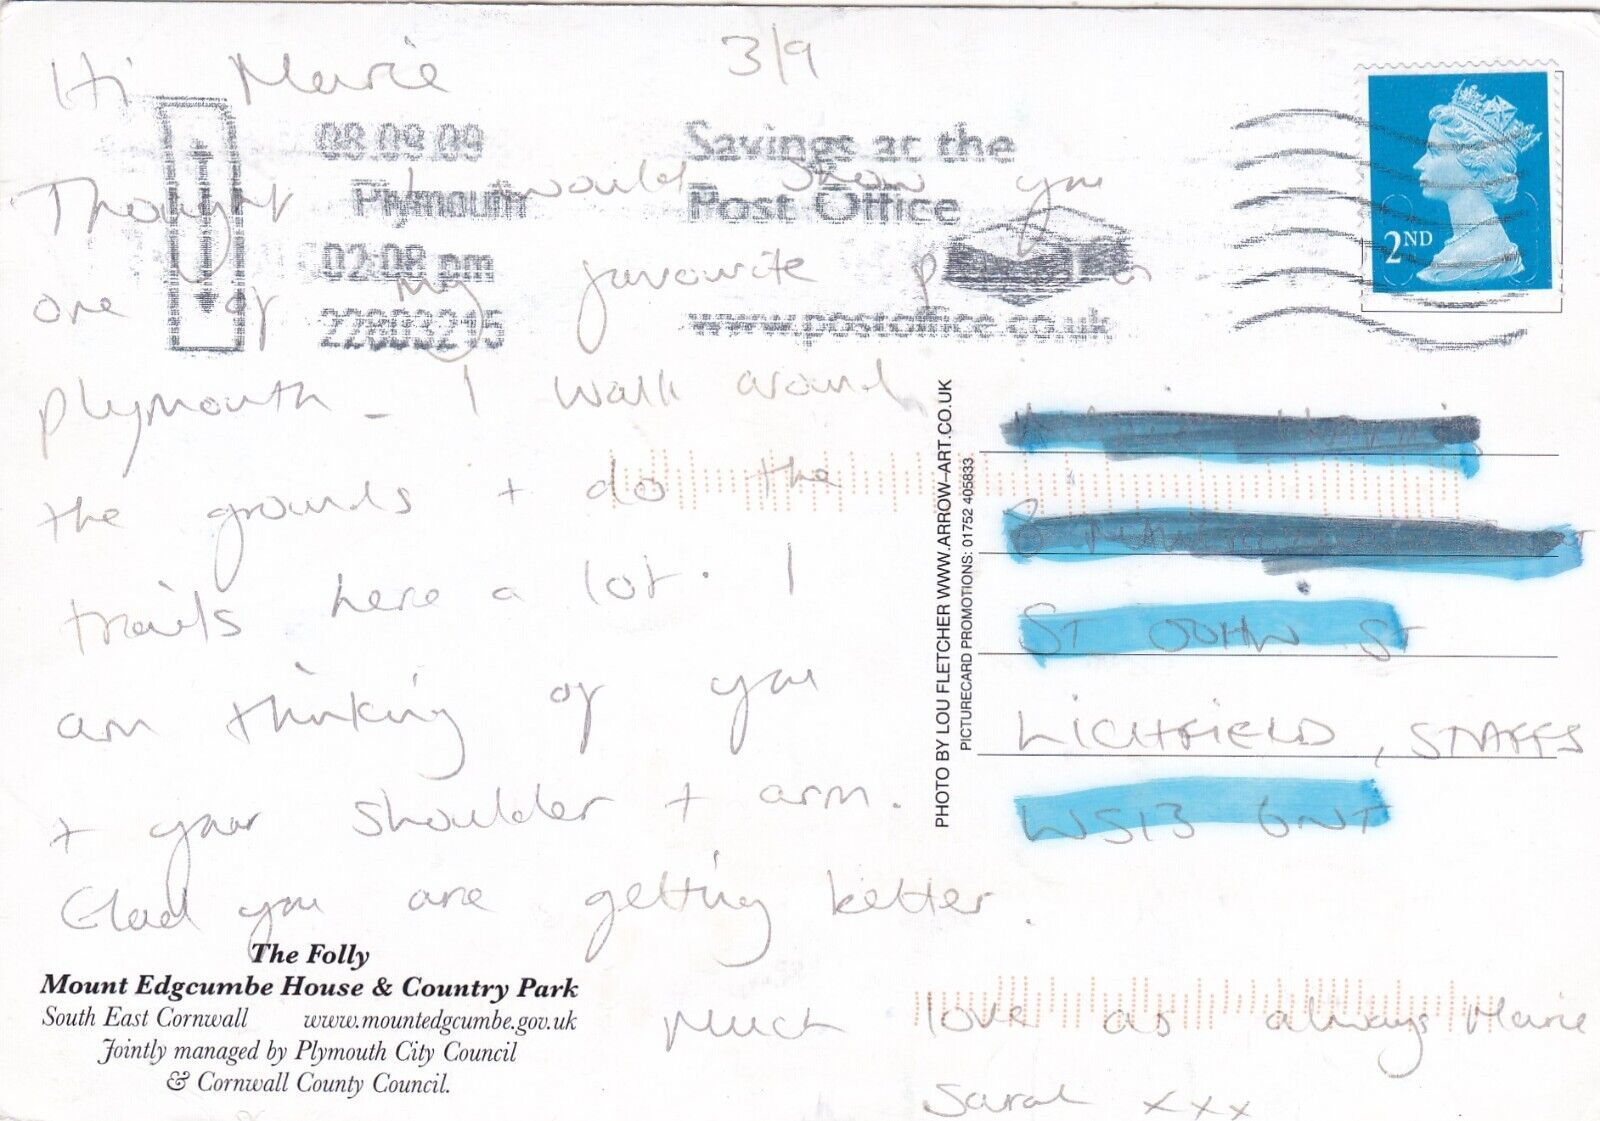 Hi Marie
3/9
08.09.09
Plymouth
02:08 pm
22803215
Savings at the
Post Office
www.postoffice.co.uk
2ND
Thought I would show you
one of my favourite in
plymouth - I walk around
the grounds + do the
trails here a lot. I
am thinking of you
+ your shoulder + arm.
Glad you are getting better.
Much love as always Marie
Sarah xxx
PHOTO BY LOU FLETCHER WWW.ARROW-ART.CO.UK
PICTURECARD PROMOTIONS: 01752 405833
ST JOHN ST
LICHFIELD, STAFFS
WS13 6NT
The Folly
Mount Edgcumbe House & Country Park
South East Cornwall www.mountedgcumbe.gov.uk
Jointly managed by Plymouth City Council
& Cornwall County Council.